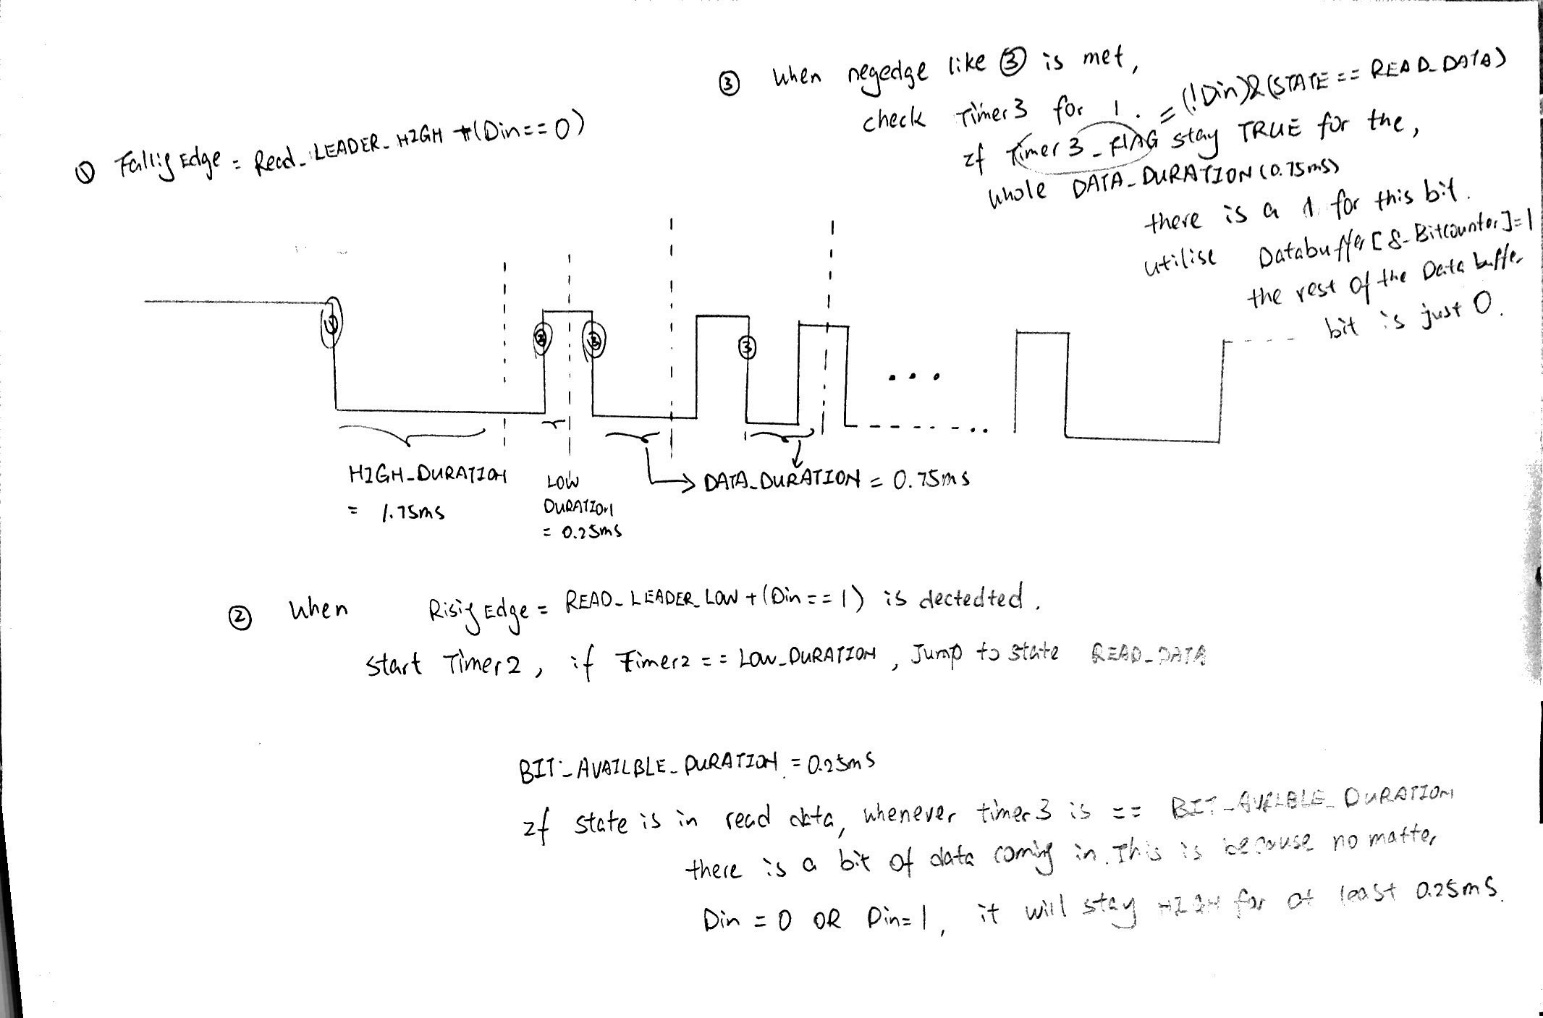 ③ when negedge like ③ is met,
check Timer3 for 1.
= (!Din)&(STATE == READ_DATA)
if Timer3_FLAG stay TRUE for the,
whole DATA_DURATION (0.75ms)
there is a 1 for this bit.
utilise Databuffer[8-Bitcounter]=1
the rest of the Data buffer
bit is just 0.
① Fallig Edge = Read_LEADER_HIGH + (Din==0)
① ② ③ ③
...
HIGH_DURATION
= 1.75ms
LOW
DURATION
= 0.25ms
DATA_DURATION = 0.75ms
② when Risig Edge = READ_LEADER_LOW + (Din==1) is dectedted.
start Timer2, if Timer2 == LOW_DURATION, Jump to state READ_DATA
BIT_AVAILBLE_DURATION = 0.25ms
If state is in read data, whenever timer3 is == BIT_AVALBLE_DURATION
there is a bit of data coming in. This is because no matter
Din = 0 OR Din=1, it will stay HIGH for at least 0.25ms.